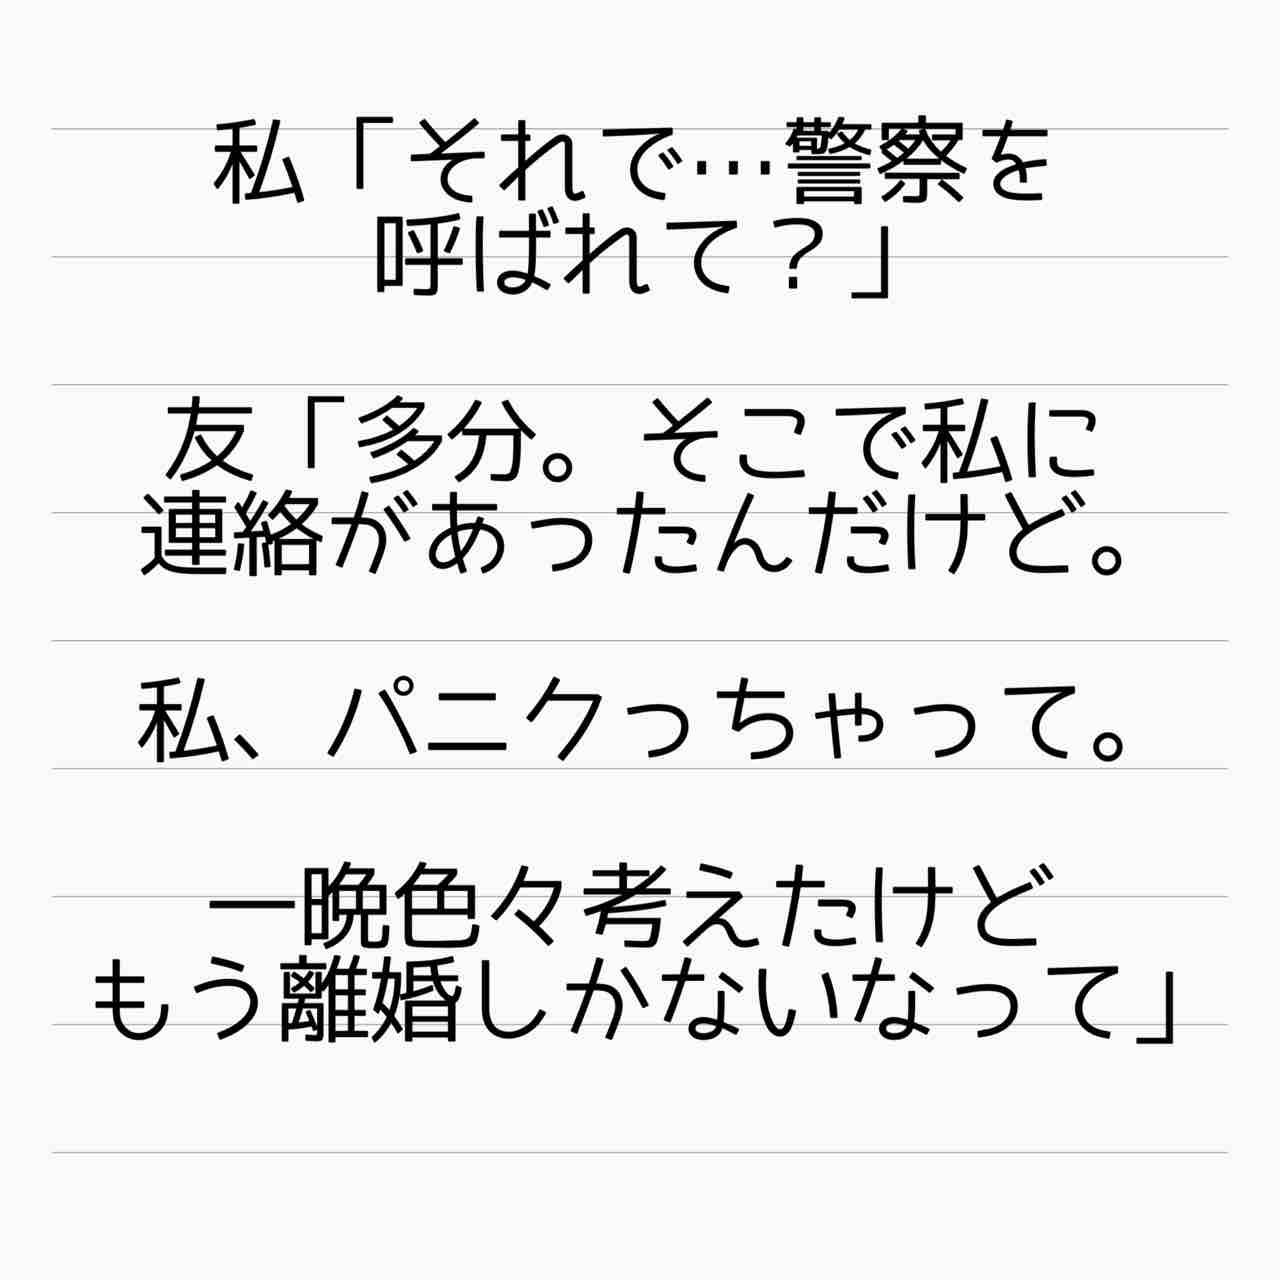 私「それで…警察を
呼ばれて？」
友「多分。そこで私に
連絡があったんだけど。
私、パニクっちゃって。
一晩色々考えたけど
もう離婚しかないなって」